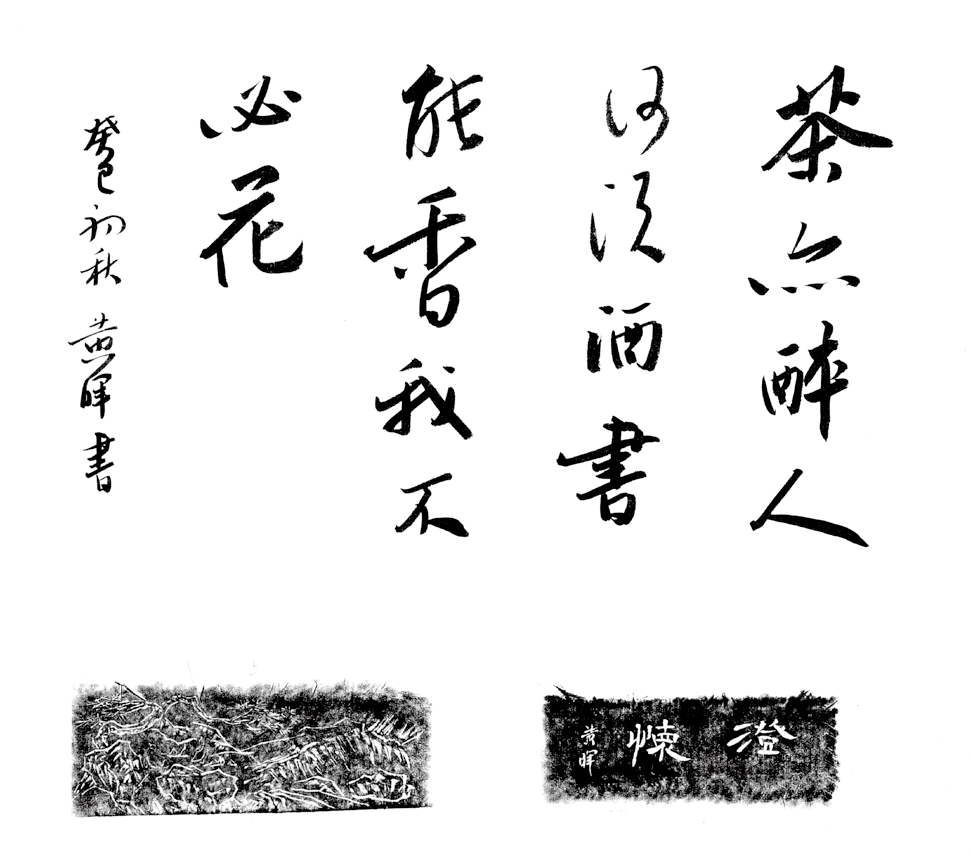 茶亦醉人
何須酒書
能香我不
必花
癸巳初秋 黄暉書
澄懷
黄暉